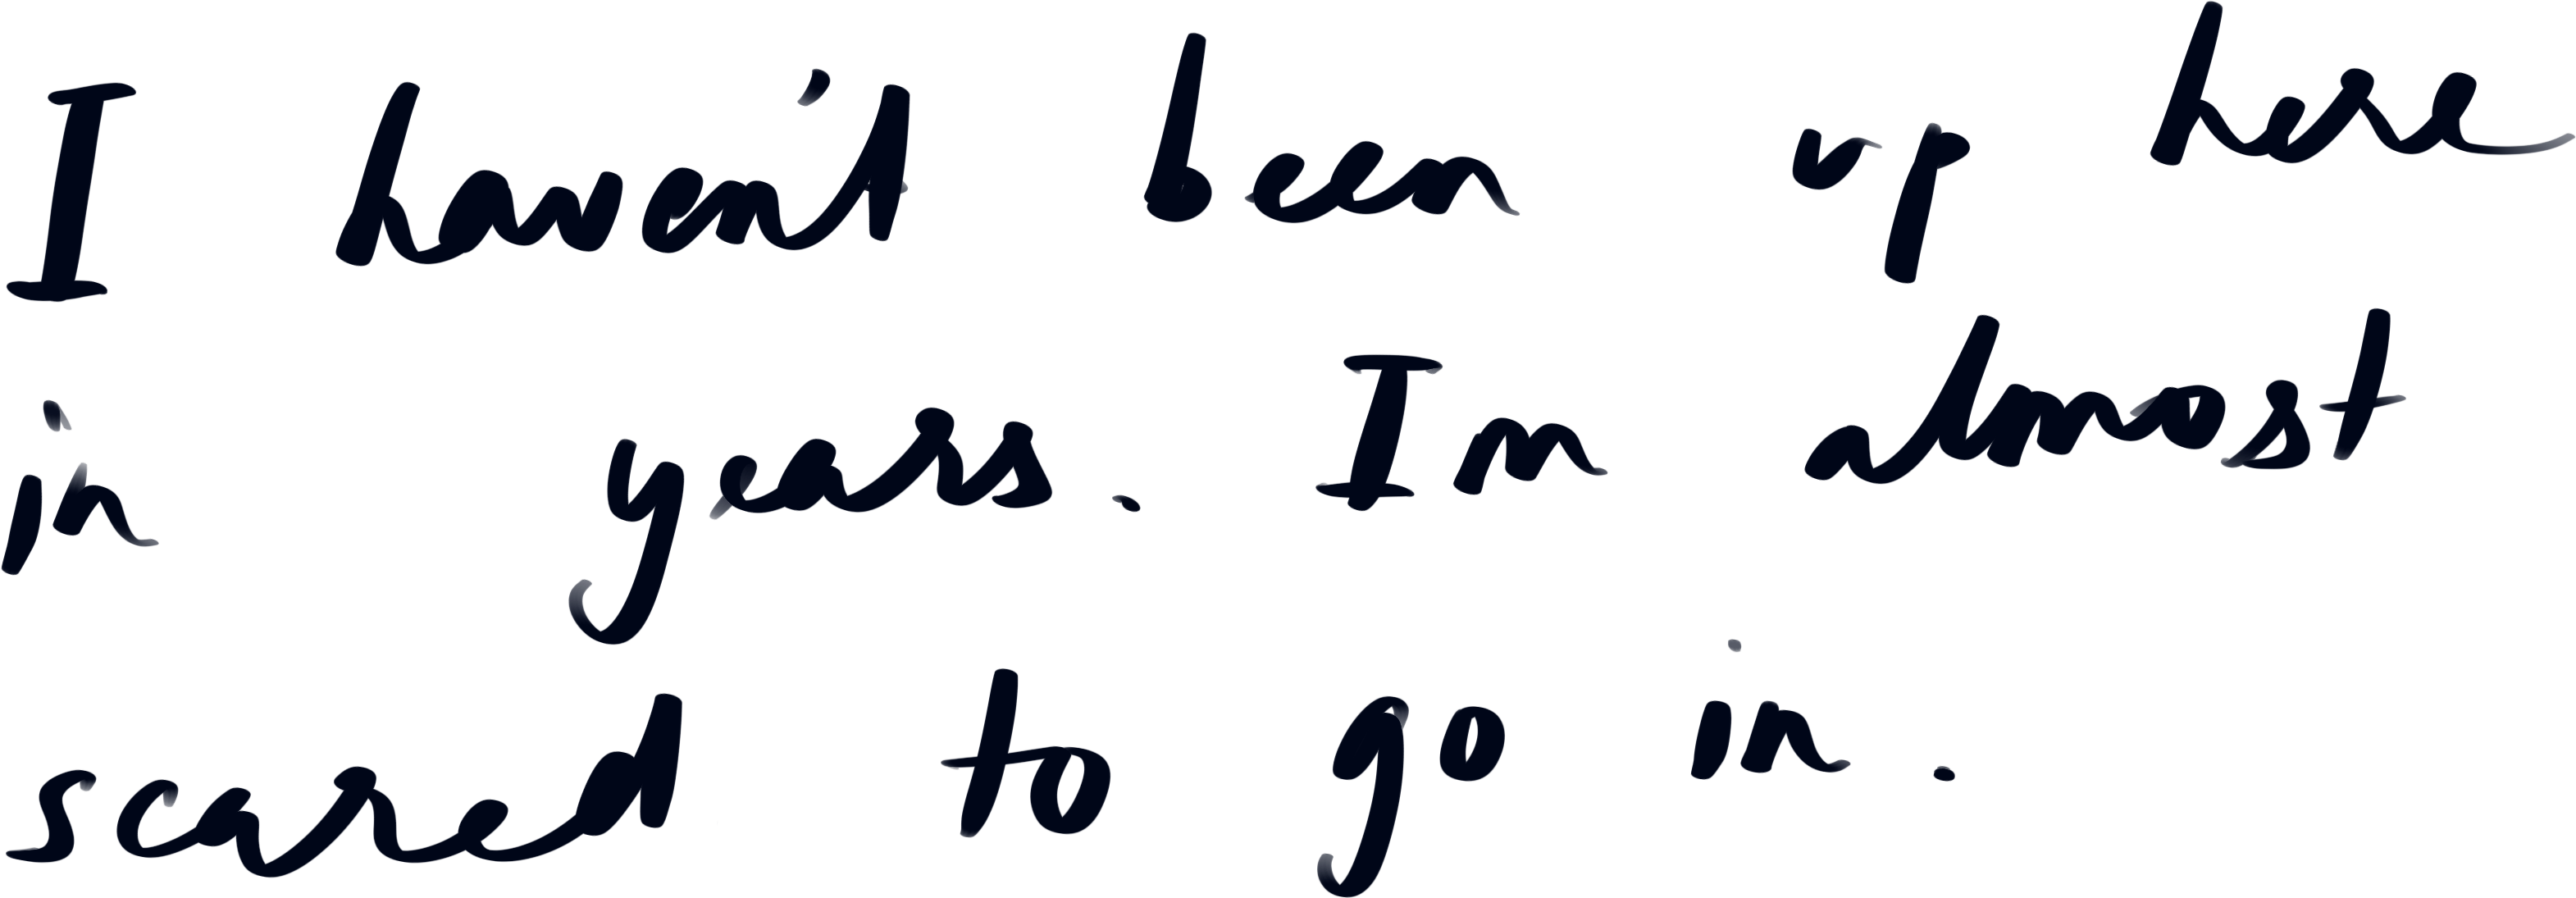 I haven't been up here
in years. Im almost
scared to go in.